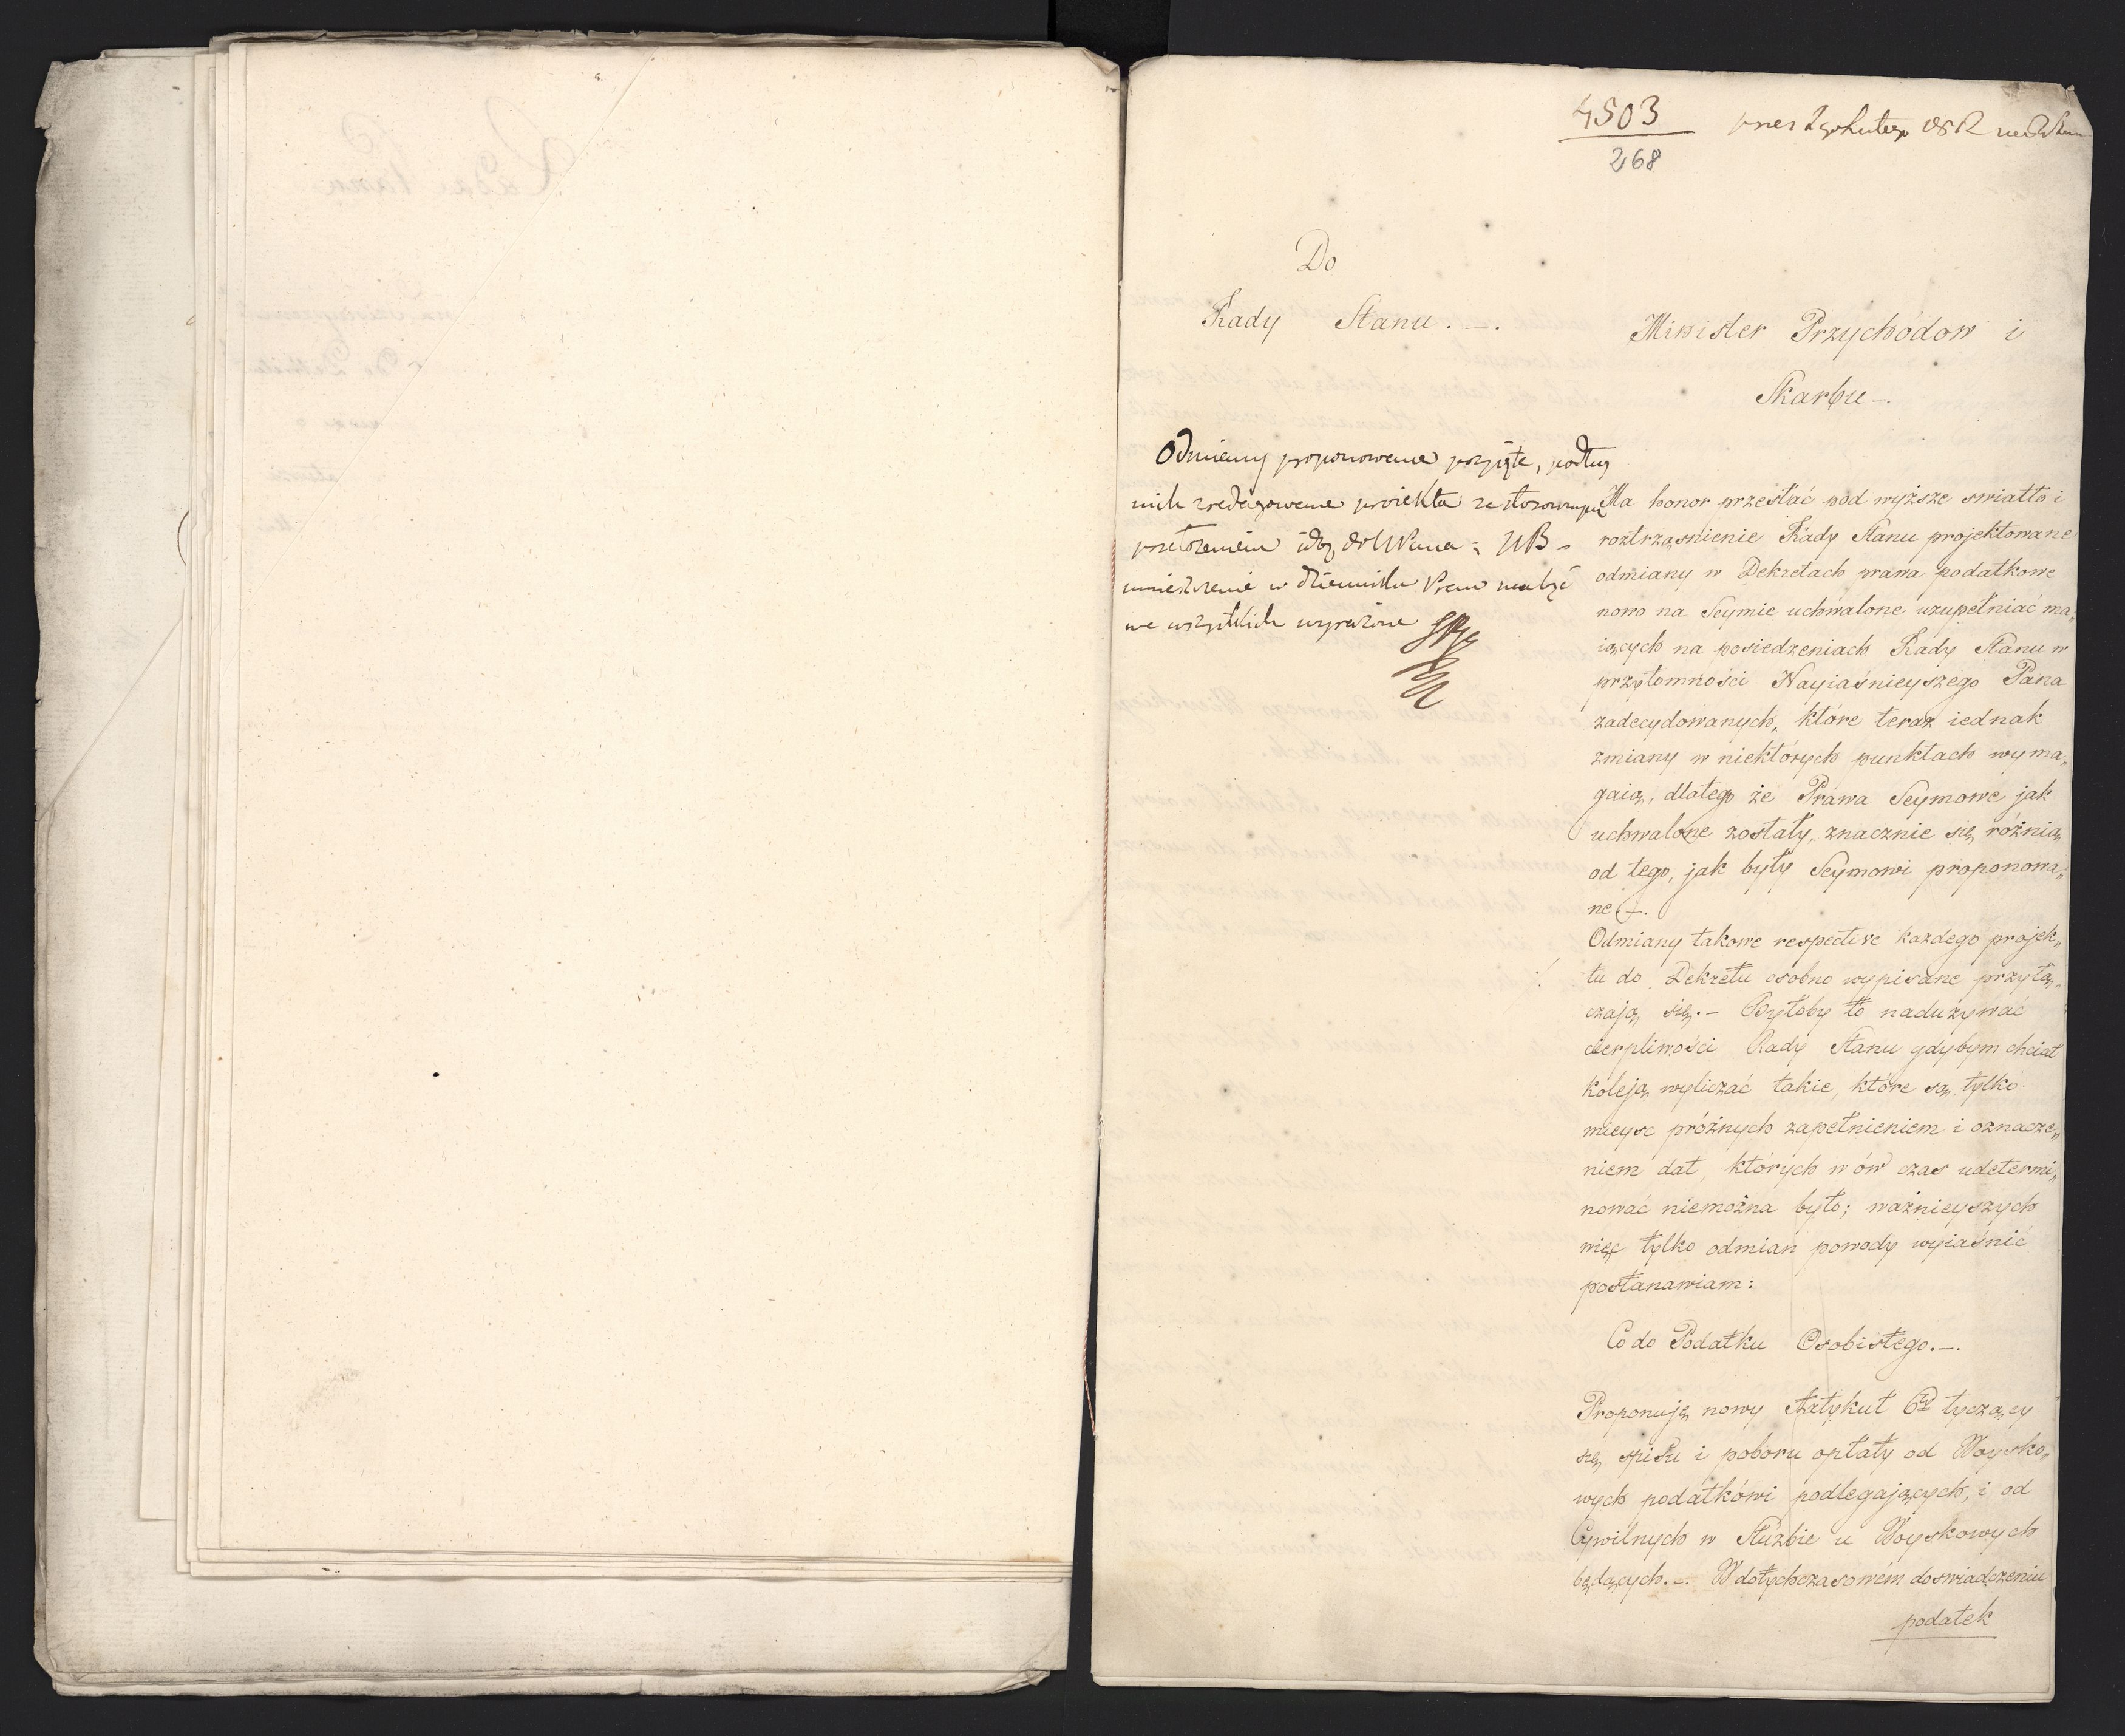 4503
268
Lutego 1812
Do
Rady Stanu. —.
Minister Przychodow i
Skarbu —.
Odmiany proponowane przyięte, podług
nich zredagowane proiekta
NB –
umieszczenie w dzienniku Praw
we wszystkich wyrażone
Ma honor przesłać pod wyższe swiatło i
roztrząsnienie Rady Stanu projektowane
odmiany w Dekretach prawa podatkowe
nowo na Seymie uchwalone uzupełniać ma„
iących na posiedzeniach Rady Stanu w
przytomności Nayiaśnieyszego Pana
zadecydowanych, które teraz iednak
zmiany w niektórych punktach wyma„
gaią, dlatego że Prawa Seymowe jak
uchwalone zostały, znacznie się różnią
od tego, jak były Seymowi proponowa„
ne. —.
Odmiany takowe respective każdego projek„
tu do Dekretu osobno wypisane przyłą„
czają się. – Byłoby to nadużywać
cierpliwości Rady Stanu gdybym chciał
koleją wyliczać takie, które są tylko
mieysc próżnych zapełnieniem i oznacze„
niem dat, których w ów czas udetermi„
nować niemożna było; ważnieyszych
więc tylko odmian powody wyiaśnić
postanawiam:
Co do Podatku Osobistego. —.
Proponuję nowy Artykuł 6ty tyczący
się spisu i poboru opłaty od Woysko„
wych podatkówi podlegających, i od
Cywilnych w Służbie u Woyskowych
będących. —. W dotychczasowém doswiadczeniu
podatek